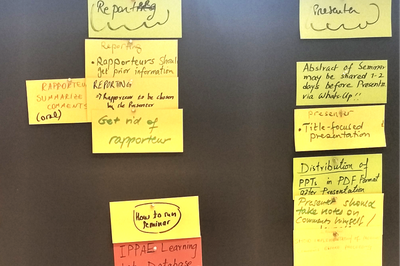 Reporting
Reporting
• Rapporteurs should
get prior information
REPORTING
→ Rapporteur to be chosen
by the Presenter
RAPPORTEUR
SUMMARIZE
COMMENTS
(oral)
Get rid of
rapporteur
How to run
seminar
IPPAE Learning
Database
Presenter
Abstract of Seminar
may be shared 1-2
days before Presenta
via WhatsUp!!
presenter
• Title-focused
presentation
Distribution of
PPTs in PDF Format
after Presentation
Presenter should
take notes on
Comments himself!